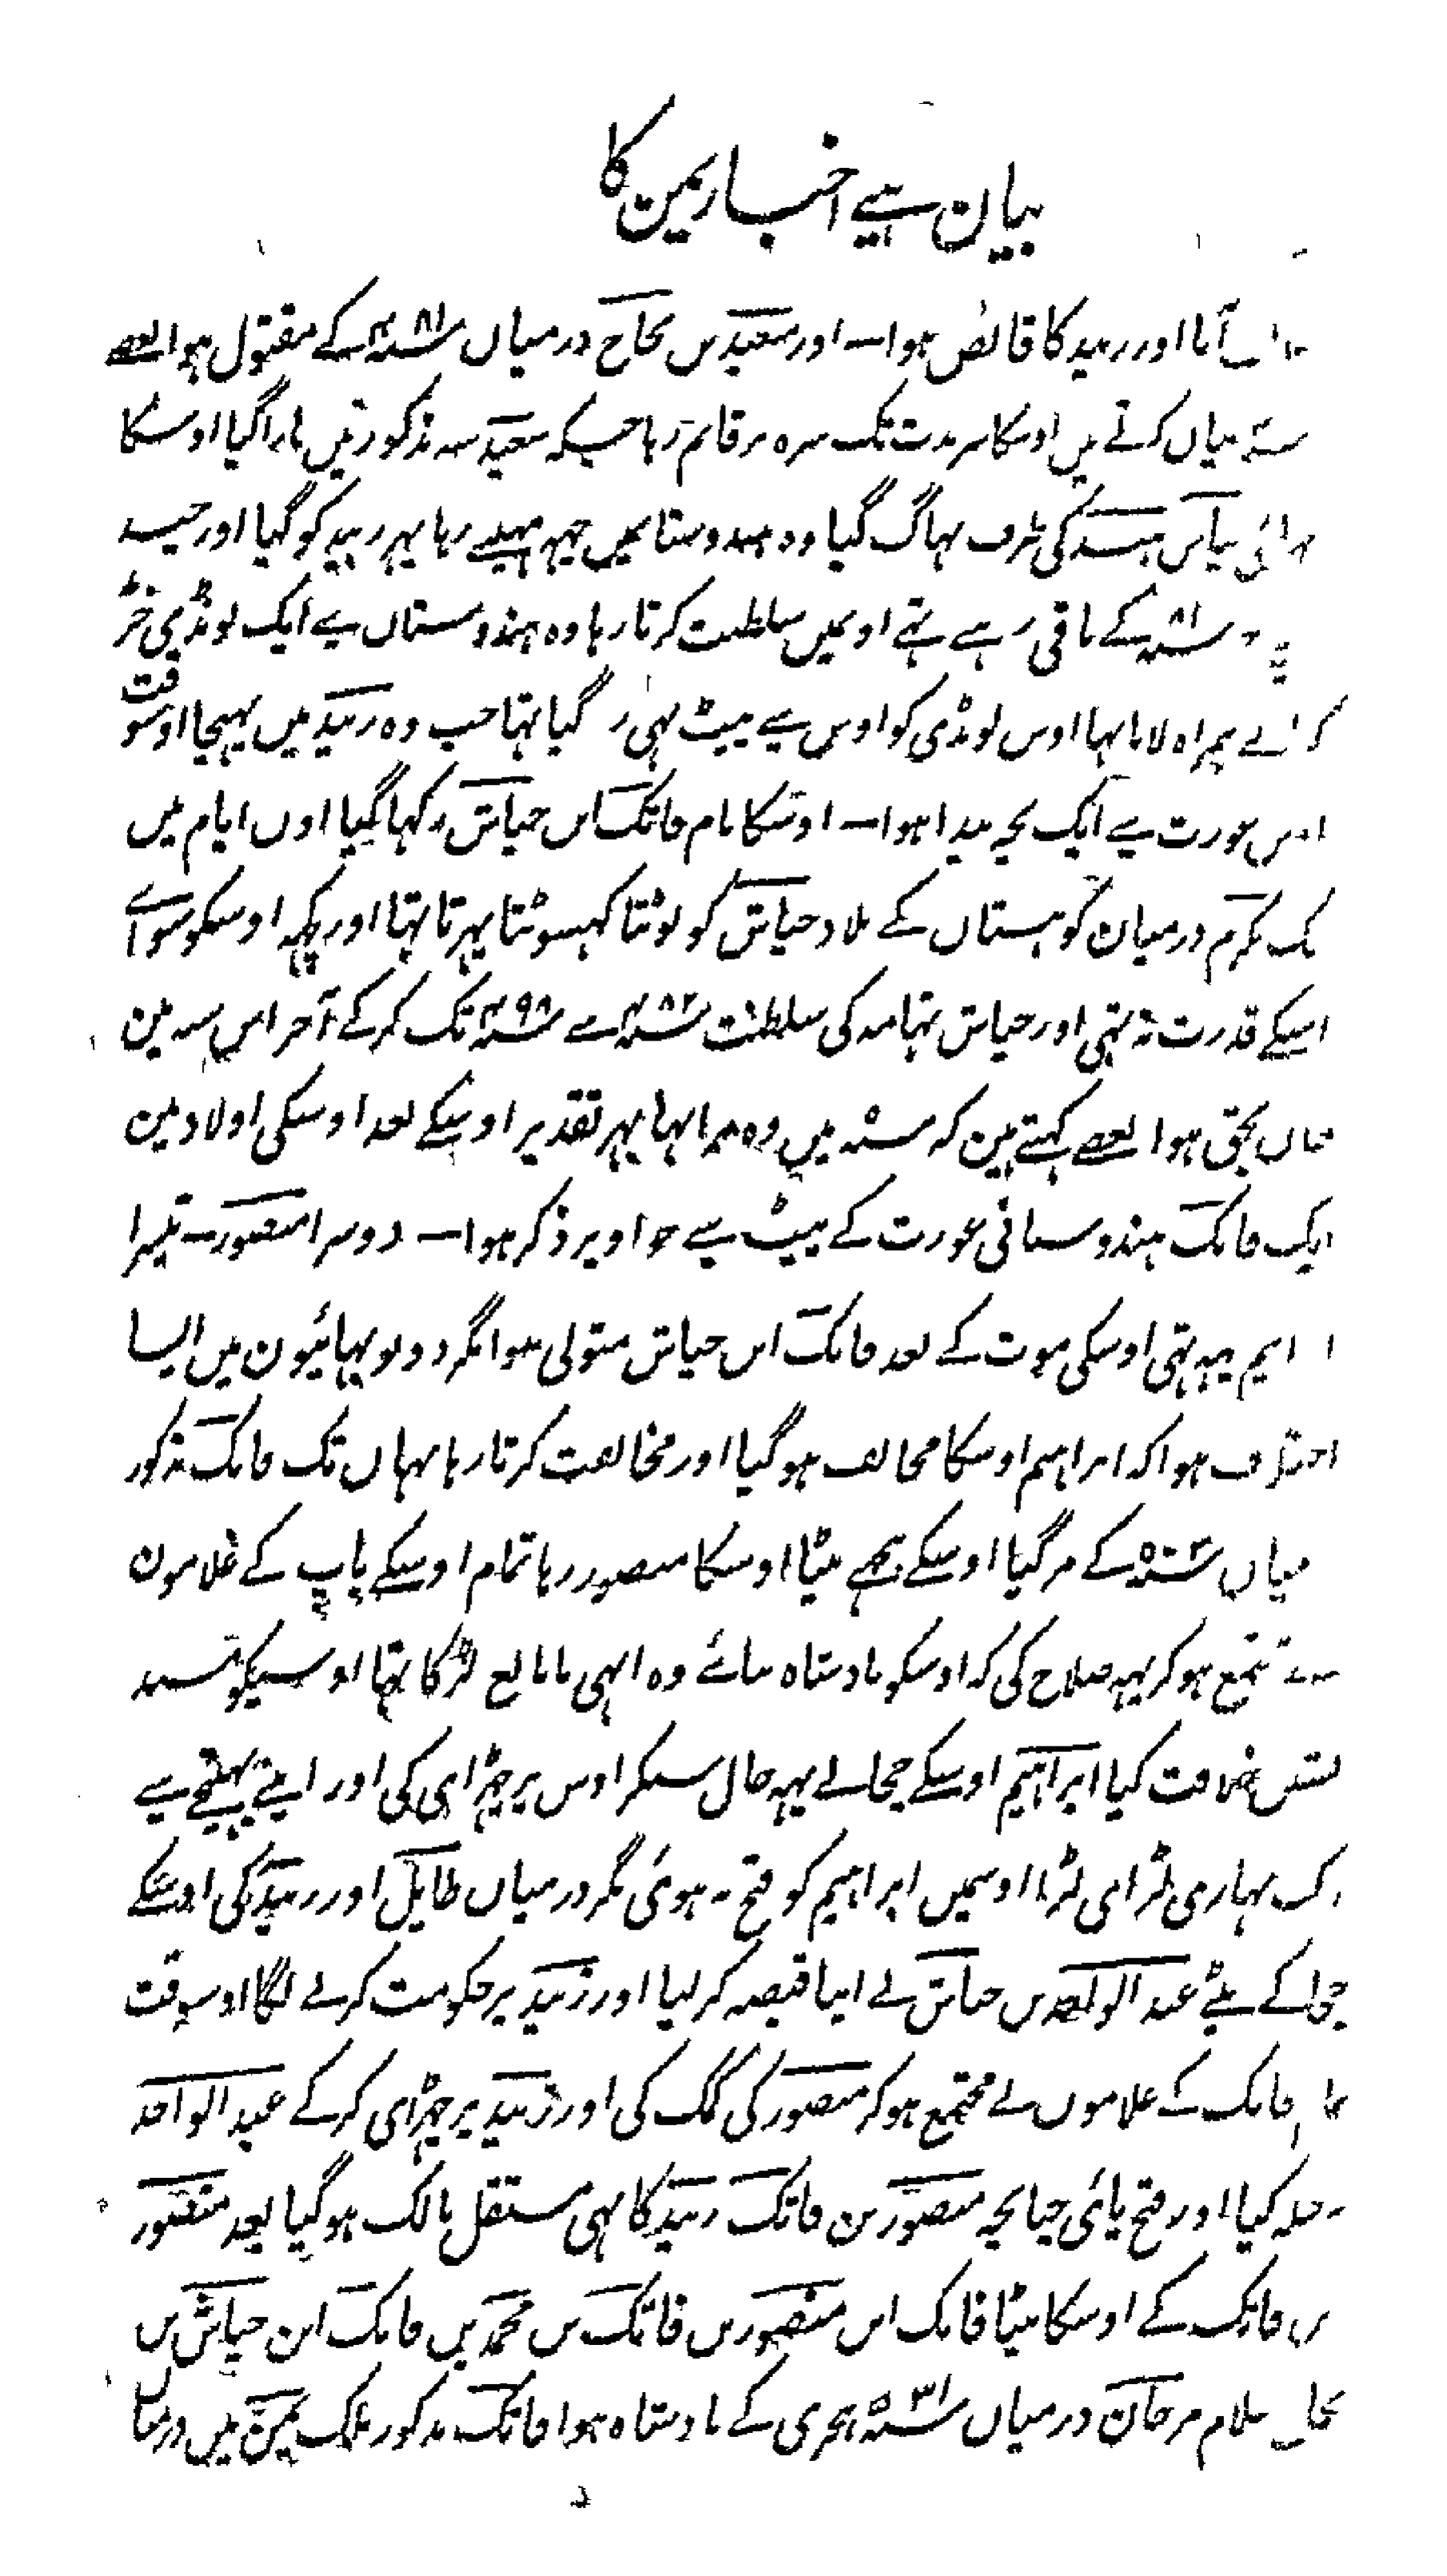 بیان سے اخبار یمن کا
آیا اور زبید کا قابض ہوا۔ اور سعید بن نجاح درمیان سنہ ۴۸۱ کے مقتول ہوا بعضے
بیان کرتے ہیں اوسکا سر مدت تک نیزہ پر قایم رہا جب کہ سعید سنہ مذکور میں مارا گیا اوسکا
بہائی جیاش ہند کی طرف بہاگ گیا وہ ہندوستانمیں چہہ مہینے رہا پہر زبید کو گیا اور جب
سنہ ۴۸۱ کے باقی رہے تہے اوسمیں سلطنت کرتا رہا وہ ہندوستان سے ایک لونڈی خر
کر اپنے ہمراہ لایا تہا اوس لونڈی کو اوس سے پیٹ بہی رہ گیا تہا جب وہ زبید میں پہنچا اوسوقت
اوس عورت سے ایک بچہ پیدا ہوا۔ اوسکا نام فاتک ابن جیاش رکہا گیا اون ایام میں
مکرم درمیان کوہستان کے بلاد جیاش کو لوٹتا کہسوٹتا پہرتا تہا اور کچہ اوسکو سواے
اسکے قدرت نہ تہی اور جیاش تہامہ کی سلطنت سنہ ۴۸۲ سے سنہ ۴۹۸ تک کرکے آخر اس سنہ مین
جان بحق ہوا بعضے کہتے ہین کہ سنہ میں وہ مرا تہا بہر تقدیر اوسکے بعد اوسکی اولاد مین
ایک فاتک ہندوستانی عورت کے پیٹ سے جو اوپر ذکر ہوا۔ دوسرا منصور۔ تیسرا
ابراہیم یہہ تہی اوسکی موت کے بعد فاتک ابن جیاش متولی ہوا مگر دونو بہائیون میں ایسا
اختلاف ہوا کہ ابراہیم اوسکا مخالف ہو گیا اور مخالفت کرتا رہا یہاں تک فاتک مذکور
میاں سنہ ۵۰۳ کے مر گیا اوسکے پیچہے بیٹا اوسکا منصور رہا تمام اوسکے باپ کے غلامون
نے مجتمع ہو کر یہہ صلاح کی کہ اوسکو بادشاہ بنائے وہ ابہی نابالغ لڑکا تہا اوسیکو مسند
نشین خلافت کیا ابراہیم اوسکے چچا نے یہہ حال سنکر اوس پر چڑہائی کی اور اپنے بہتیجے سے
ایک بہاری لڑائی لڑا اوسمیں ابراہیم کو فتح نہ ہوئی مگر درمیاں اور زبید کی اوسکے
چچا کے بیٹے عبد الواحد بن جیاش نے اپنا قبضہ کر لیا اور زبید پر حکومت کرنے لگا اوسوقت
فاتک کے غلاموں نے مجتمع ہو کر منصور کی کمک کی اور زبید پر چڑہائی کر کے عبد الواحد
حملہ کیا اور فتح پائی چنانچہ منصور بن فاتک زبید کا بہی مستقل مالک ہو گیا بعد منصور
بن فاتک کے اوسکا بیٹا فاتک ابن منصور بن فاتک بن محمد بن فاتک ابن جیاش بن
نجاح غلام مرجان درمیاں سنہ ۵۳۱ ہجری کے بادشاہ ہوا فاتک مذکور ملک یمن میں درمیان